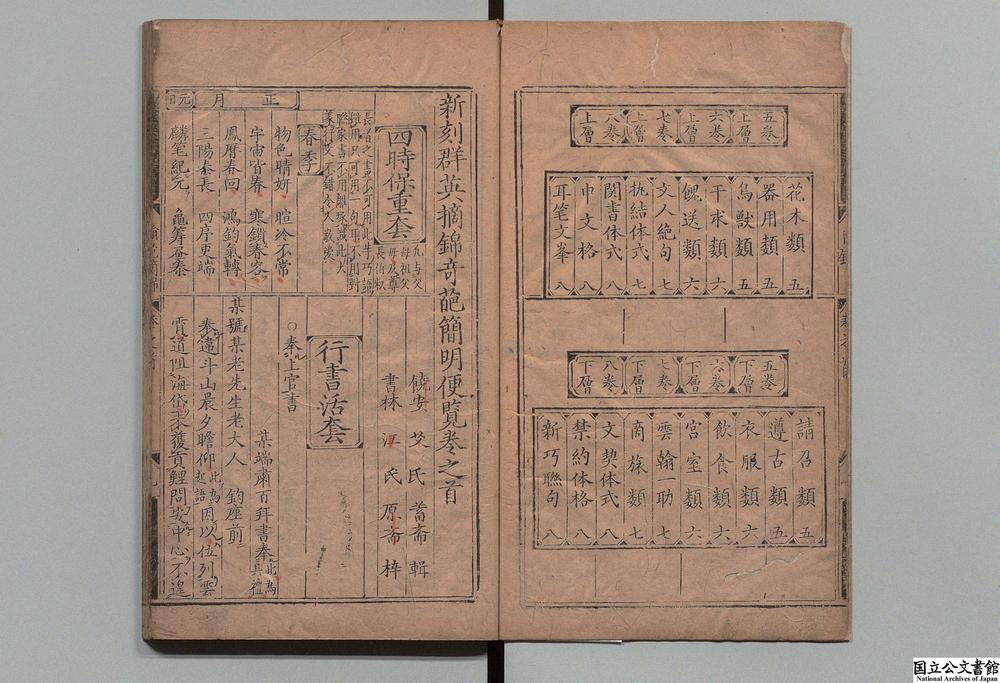 五卷上層
六卷上層
七卷上層
八卷上層
花木類 五
器用類 五
鳥獸類 五
干求類 六
餽送類 六
文人絶句 七
执結体式 七
関書体式 八
巾文格 八
耳笔文峯 八
五卷下層
六卷下層
七卷下層
八卷下層
請召類 五
遵古類 五
衣服類 六
飲食類 六
宮室類 六
雲翰一助 七
商旅類 七
文契体式 八
禁約体格 八
新巧聯句 八
新刻群英摘錦奇葩簡明便覧卷之首
饒安 艾氏 蓄斋 輯
書林 江氏 原斋 梓
四時保重套
凡与父
母祖父
母及尊
長伯叔
春季
正月 元日
物色晴妍 暄冷不常
宇宙皆春 寒鎖春客
鳳曆春回 鴻鈞氣轉
三陽泰長 四序更端
麟笔紀元 龜筹益泰
行書活套
○奉上官書
某端肅百拜書奉此為具禮
某號某老先生老大人 鈞座前
奉違斗山晨夕瞻仰此為起語因以位列雲
霄道阻海岱未獲貢鯉問安中心不遑
国立公文書館
National Archives of Japan